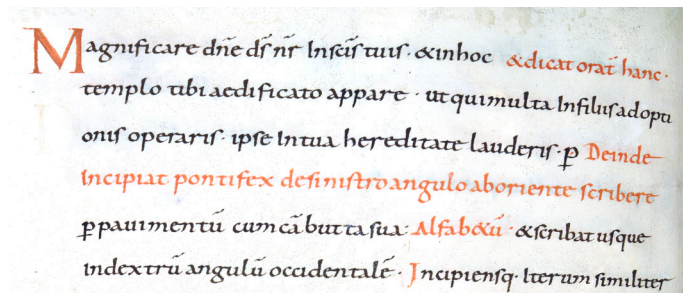 Magnificare dñe dš nr̃ Insc̃is tuis · &inhoc &dicat orat̃ hanc ·
templo tibi aedificato appare · ut quimulta Infiliis adopti
onis operaris · ipse Intua hereditate lauderis · ꝑ Deinde
incipiat pontifex desinistro angulo aboriente scribere
ꝑ pauimentũ cum cãbutta sua · Alfab&ũ · &scribat usque
indextrũ angulũ occidentalẽ · Incipiensq· Iterum similiter